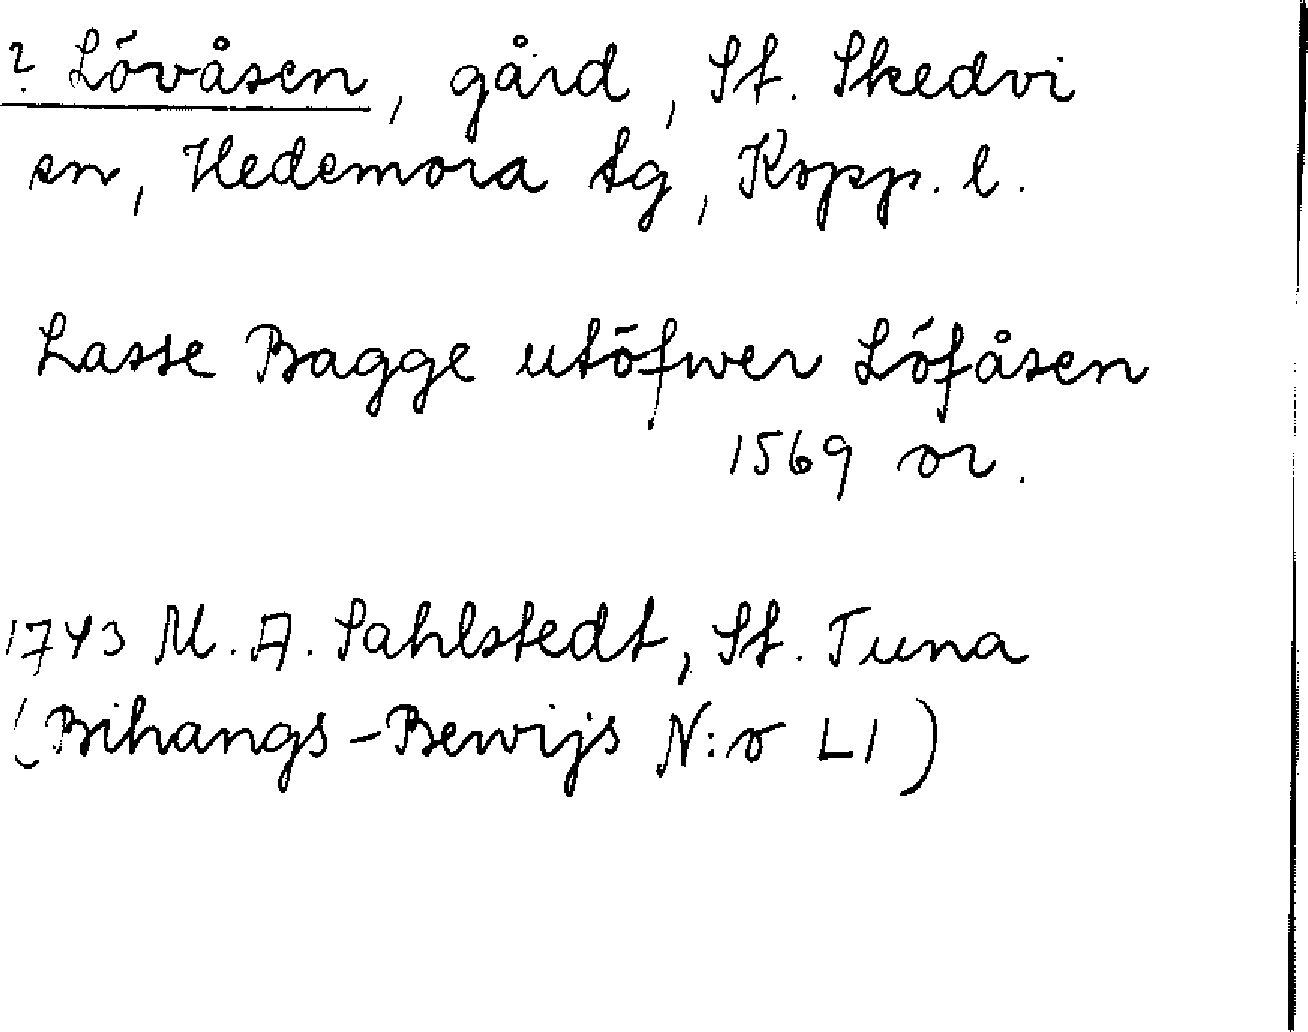 ? Lövåsen, gård, St. Skedvi
sn, Hedemora tg, Kopp. l.
Lasse Bagge utöfwer Löfåsen
1569 or.
1743 M. A. Sahlstedt, St. Tuna
(Bihangs-Bewijs N:o LI)